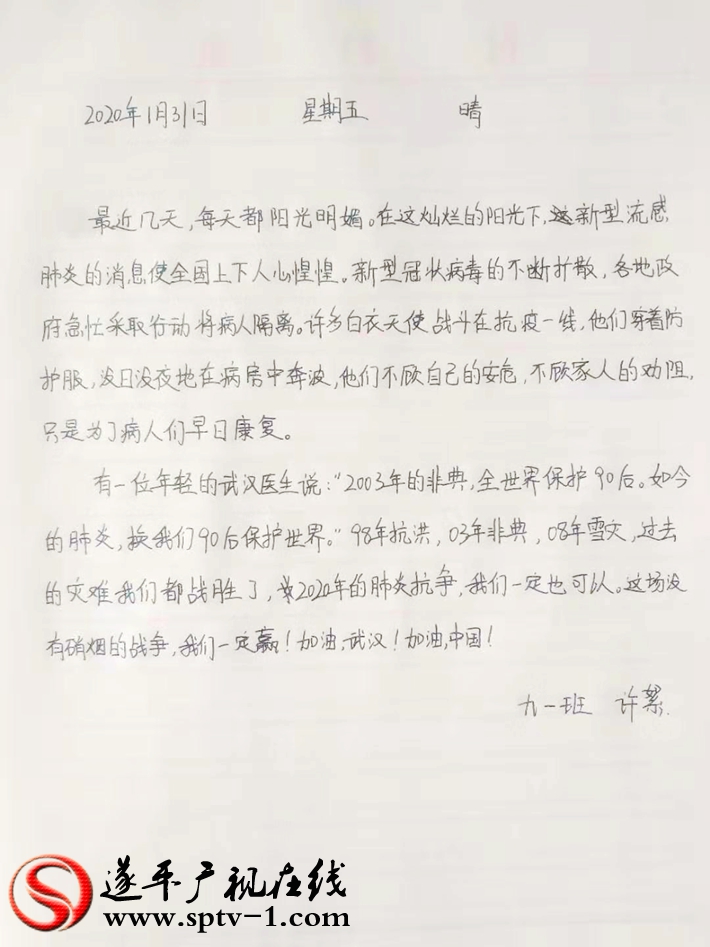 2020年1月31日 星期五 晴
最近几天，每天都阳光明媚。在这灿烂的阳光下，这新型流感
肺炎的消息使全国上下人心惶惶。新型冠状病毒的不断扩散，各地政
府急忙采取行动将病人隔离。许多白衣天使战斗在抗疫一线，他们穿着防
护服，没日没夜地在病房中奔波，他们不顾自己的安危，不顾家人的劝阻，
只是为了病人们早日康复。
有一位年轻的武汉医生说：“2003年的非典，全世界保护90后。如今
的肺炎，换我们90后保护世界。”98年抗洪，03年非典，08年雪灾，过去
的灾难我们都战胜了，2020年的肺炎抗争，我们一定也可以。这场没
有硝烟的战争，我们一定赢！加油，武汉！加油，中国！
九一班 许絮
遂平广视在线
www.sptv-1.com